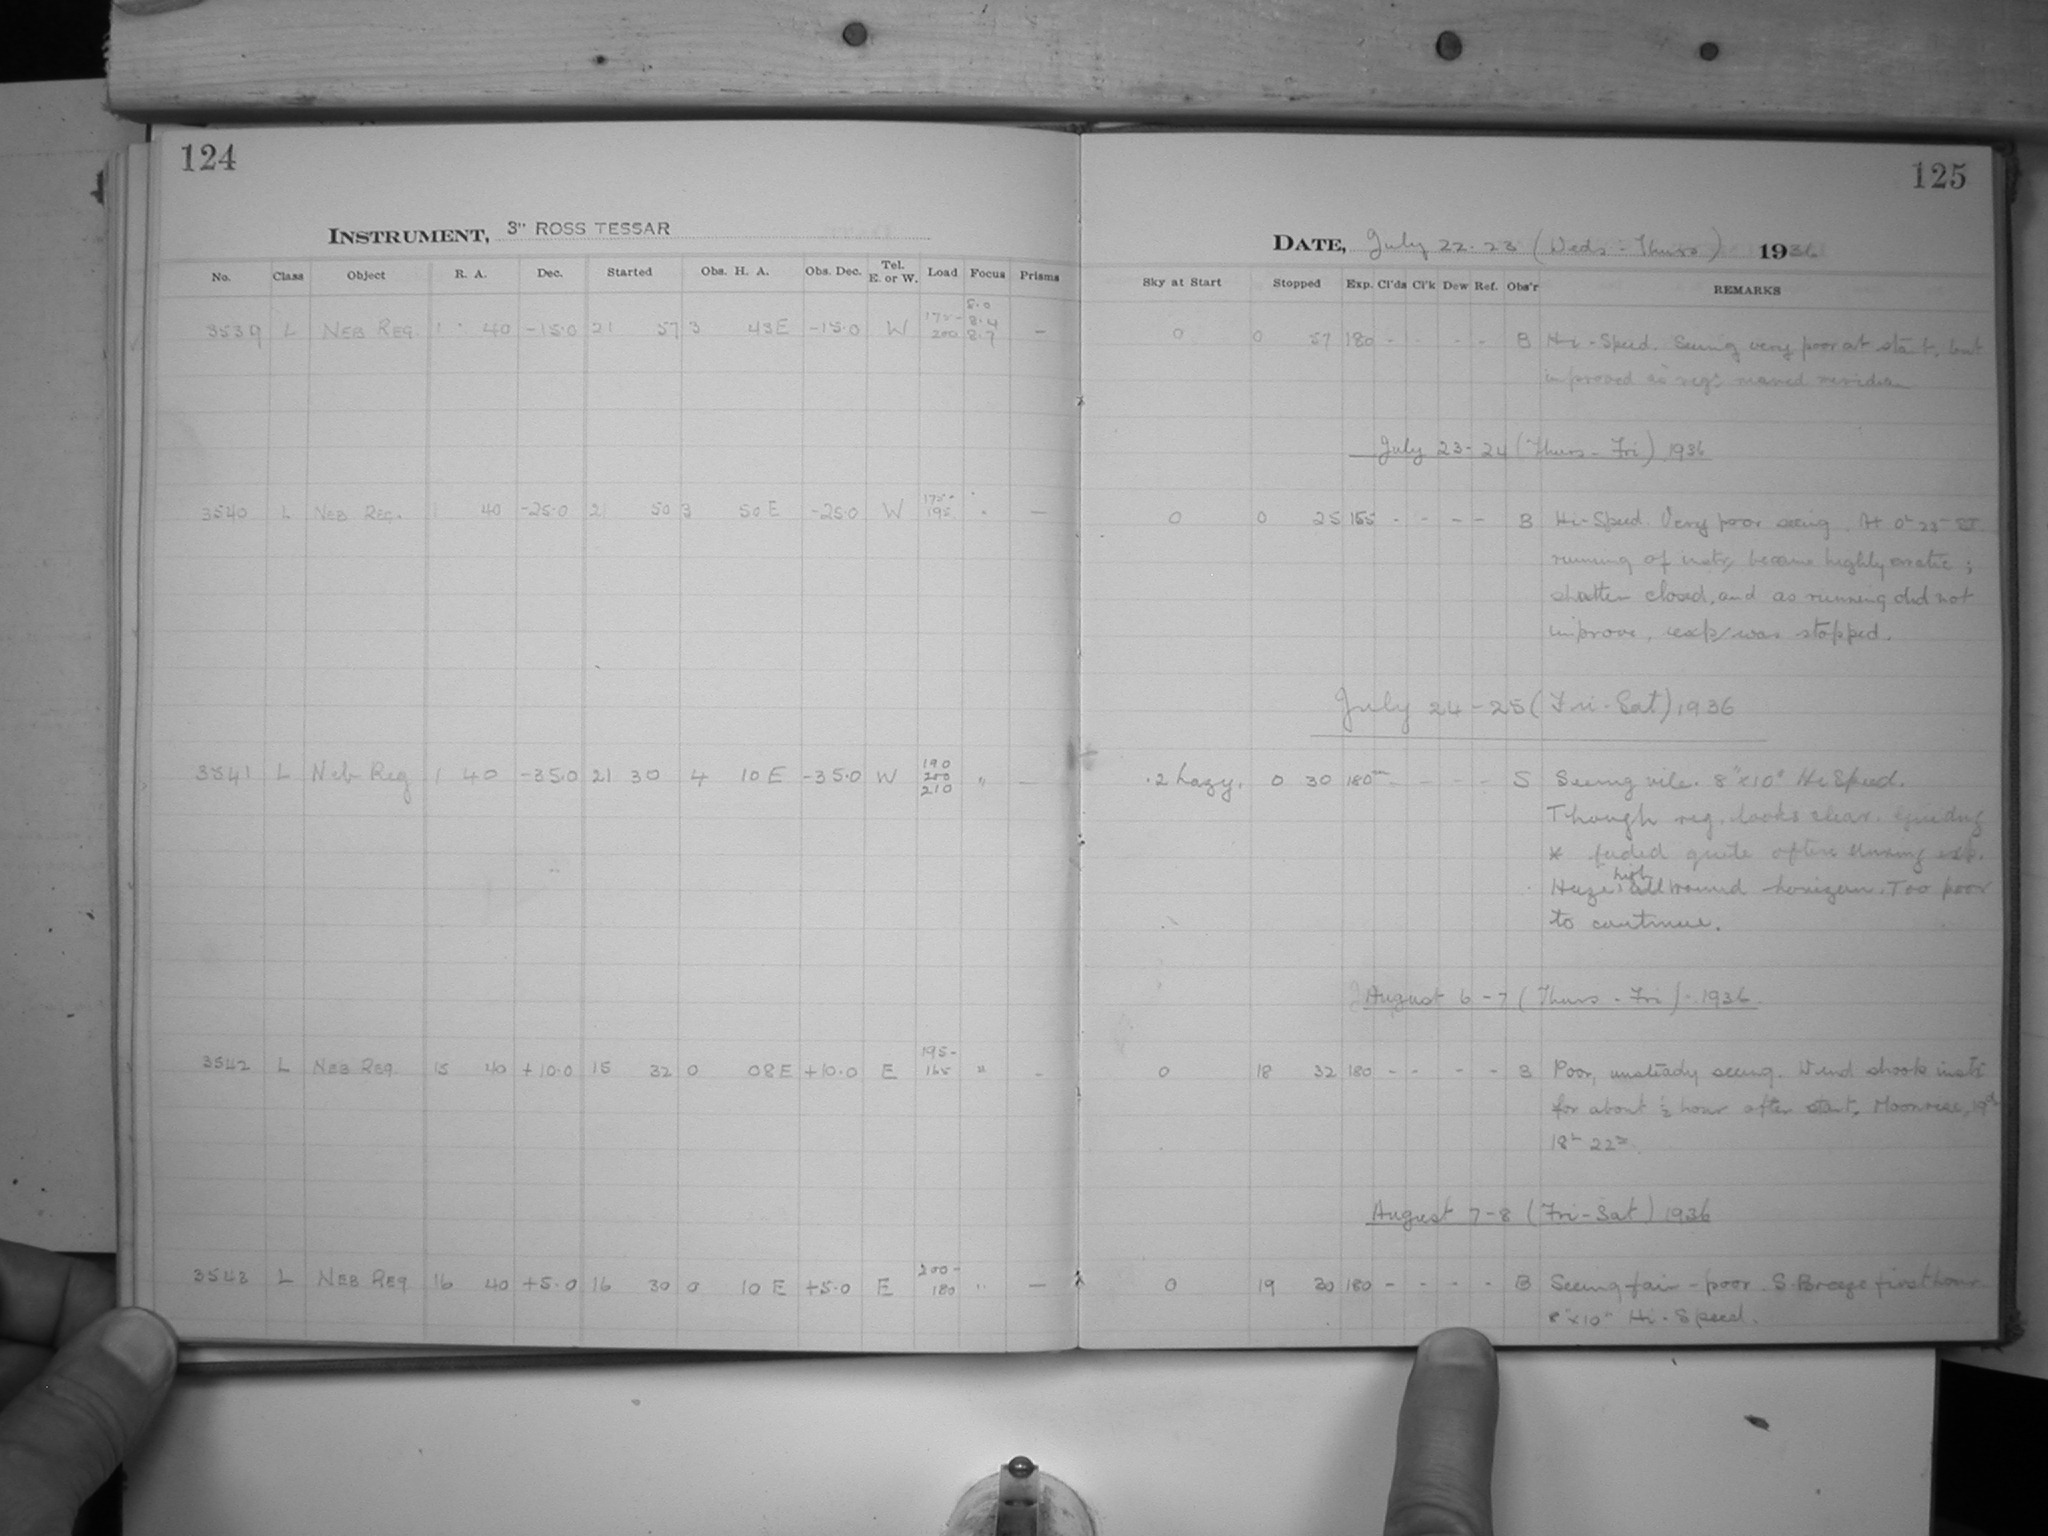 124
INSTRUMENT, 3" ROSS TESSAR
No. Class Object R. A. Dec. Started Obs. H. A. Obs. Dec. Tel. E. or W. Load Focus Prisms
3539 L NEB REG. 1 40 -15.0 21 57 3 43 E -15.0 W 175- 200 8.0 8.4 8.7 —
3540 L NEB REG. 1 40 -25.0 21 50 3 50 E -25.0 W 175- 195 " —
3541 L Neb Reg 1 40 -35.0 21 30 4 10 E -35.0 W 190 200 210 " —
3542 L NEB REG. 15 40 +10.0 15 32 0 08 E +10.0 E 195- 165 " -
3543 L NEB REG 16 40 +5.0 16 30 0 10 E +5.0 E 200- 180 " —
125
DATE, July 22-23 (Weds - Thurs) 1936
Sky at Start Stopped Exp. Cl'ds Cl'k Dew Ref. Obs'r REMARKS
0 0 57 180 - - - - B Hi-Speed. Seeing very poor at start, but
improved as reg. neared meridian
July 23-24 (Thurs - Fri) 1936
0 0 25 155 - - - - B Hi-Speed. Very poor seeing. At 0h 23m ST
running of instr. became highly erratic;
shutter closed, and as running did not
improve, exp. was stopped.
July 24-25 (Fri-Sat) 1936
.2 hazy. 0 30 180m - - - - S Seeing vile. 8"x10" Hi Speed.
Though reg. looks clear. guiding
* faded quite often during exp.
Haze high all round horizon. Too poor
to continue.
August 6-7 (Thurs - Fri) - 1936
0 18 32 180 - - - - B Poor, unsteady seeing. Wind shook instr
for about ½ hour after start. Moonrise, 19d
18h 22m
August 7-8 (Fri-Sat) 1936
0 19 30 180 - - - - B Seeing fair - poor. S. Breeze first hour
8"x10" Hi-Speed.